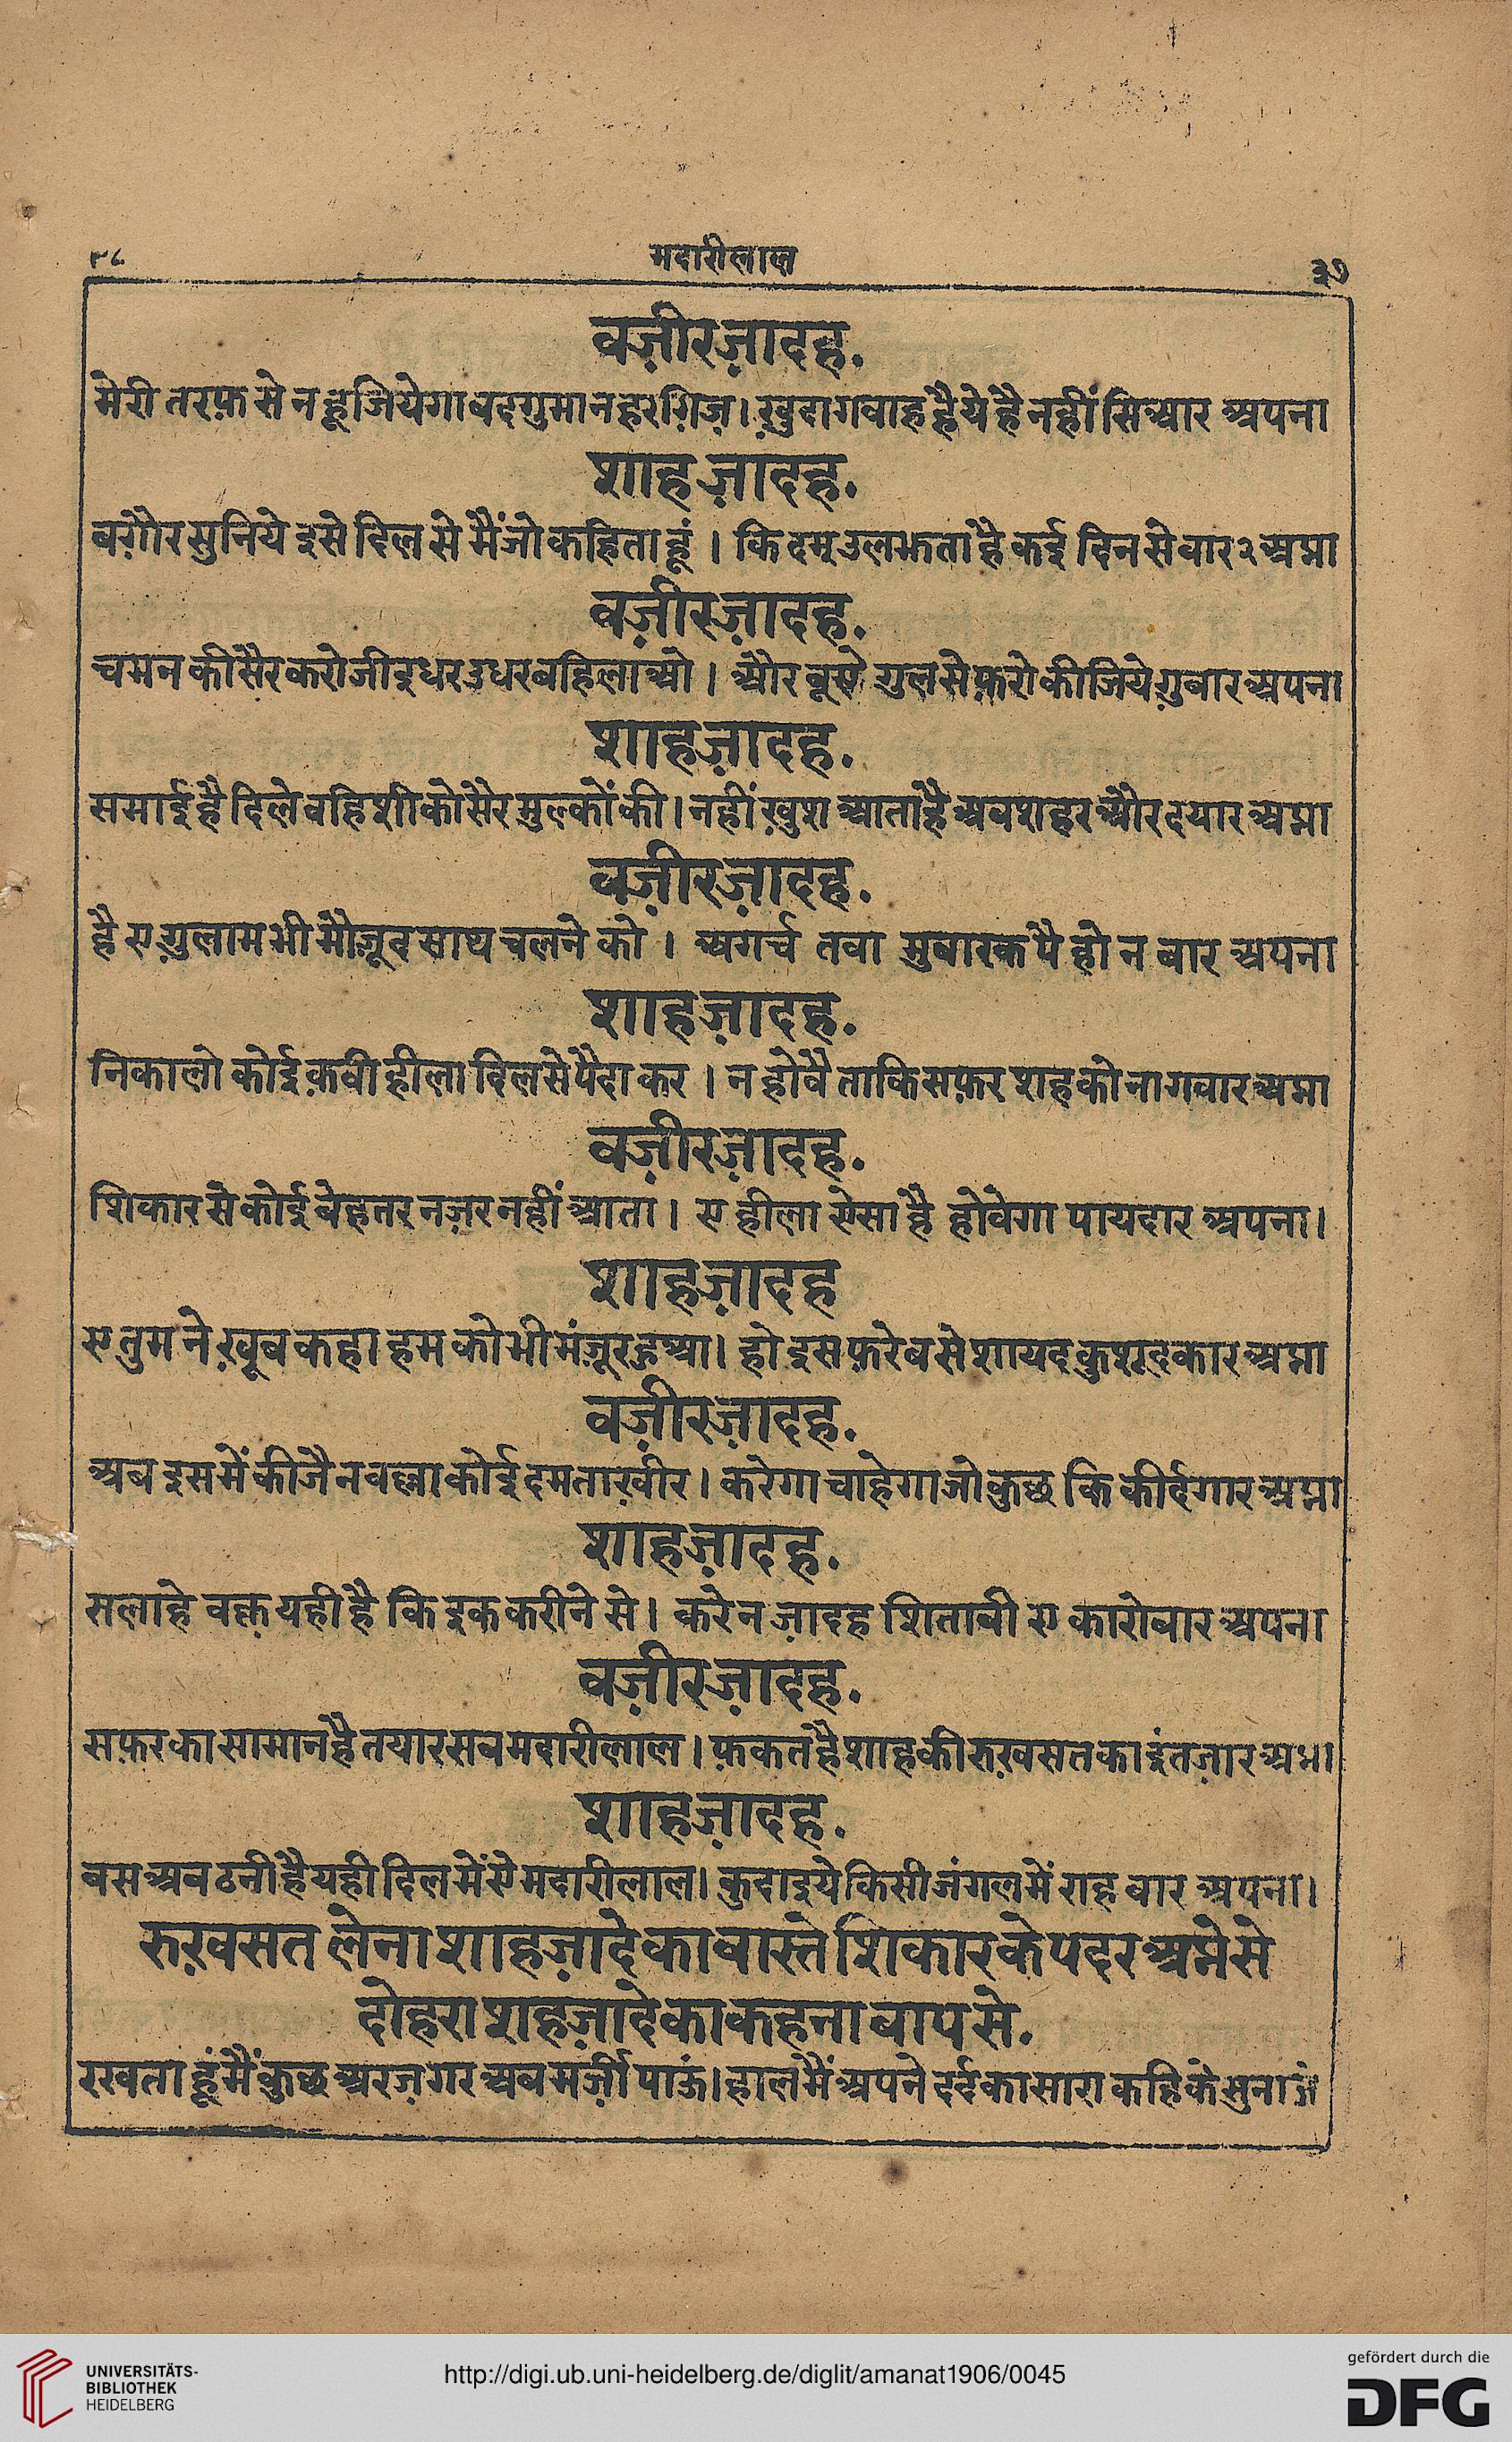 मदारीलाल
३७
वज़ीरज़ादह.
मेरी तरफ़ से न हूजियेगा बदगुमान हरगिज़। ख़ुदा गवाह है ये है नहीं सिआर अपना
शाहज़ादह.
बग़ौर सुनिये इसे दिल से मैं जो कहिता हूं । कि दम उलझता है कई दिन से बार२ अप्ना
वज़ीरज़ादह.
चमन की सैर करो जी इधर उधर बहिलाओ । और बूए गुल से फ़रो कीजिये ग़ुबार अपना
शाहज़ादह.
समाई है दिले वहिशी को सैर मुल्कों की। नहीं ख़ुश आता है अब शहर और दयार अप्ना
वज़ीरज़ादह.
है ए ग़ुलाम भी मौज़ूद साथ चलने को । अगर्च तवा मुबारक पै हो न बार अपना
शाहज़ादह.
निकालो कोई क़वी हीला दिल से पैदा कर । न होवै ताकि सफ़र शह को नागवार अप्ना
वज़ीरज़ादह.
शिकार से कोई बेहतर नज़र नहीं आता। ए हीला ऐसा है होवेगा पायदार अपना।
शाहज़ादह
ए तुम ने ख़ूब कहा हम को भी मंज़ूर हुआ। हो इस फ़रेब से शायद कुशूदकार अप्ना
वज़ीरज़ादह.
अब इस में कीजै न वल्ला कोई दम ताख़ीर। करेगा चाहेगा जो कुछ कि कीर्दगार अप्ना
शाहज़ादह.
सलाहे वक्त़ यही है कि इक करीने से। करे न ज़ादह शिताबी ए कारोबार अपना
वज़ीरज़ादह.
सफ़र का सामान है तयार सब मदारीलाल। फ़कत है शाह की रुख़सत का इंतज़ार अप्ना
शाहज़ादह.
बस अब ठनी है यही दिल में ऐ मदारीलाल। कुदाइये किसी जंगल में राह वार अपना।
रुख़सत लेना शाहज़ादे का वास्ते शिकार के पदर अप्ने से
दोहरा शहज़ादे का कहना बाप से.
रखता हूं मैं कुछ अरज़ गर अब मर्ज़ी पाऊं। हाल मैं अपने दर्द का सारा कहि के सुनाऊं
UNIVERSITÄTS-
BIBLIOTHEK
HEIDELBERG
http://digi.ub.uni-heidelberg.de/diglit/amanat1906/0045
gefördert durch die
DFG